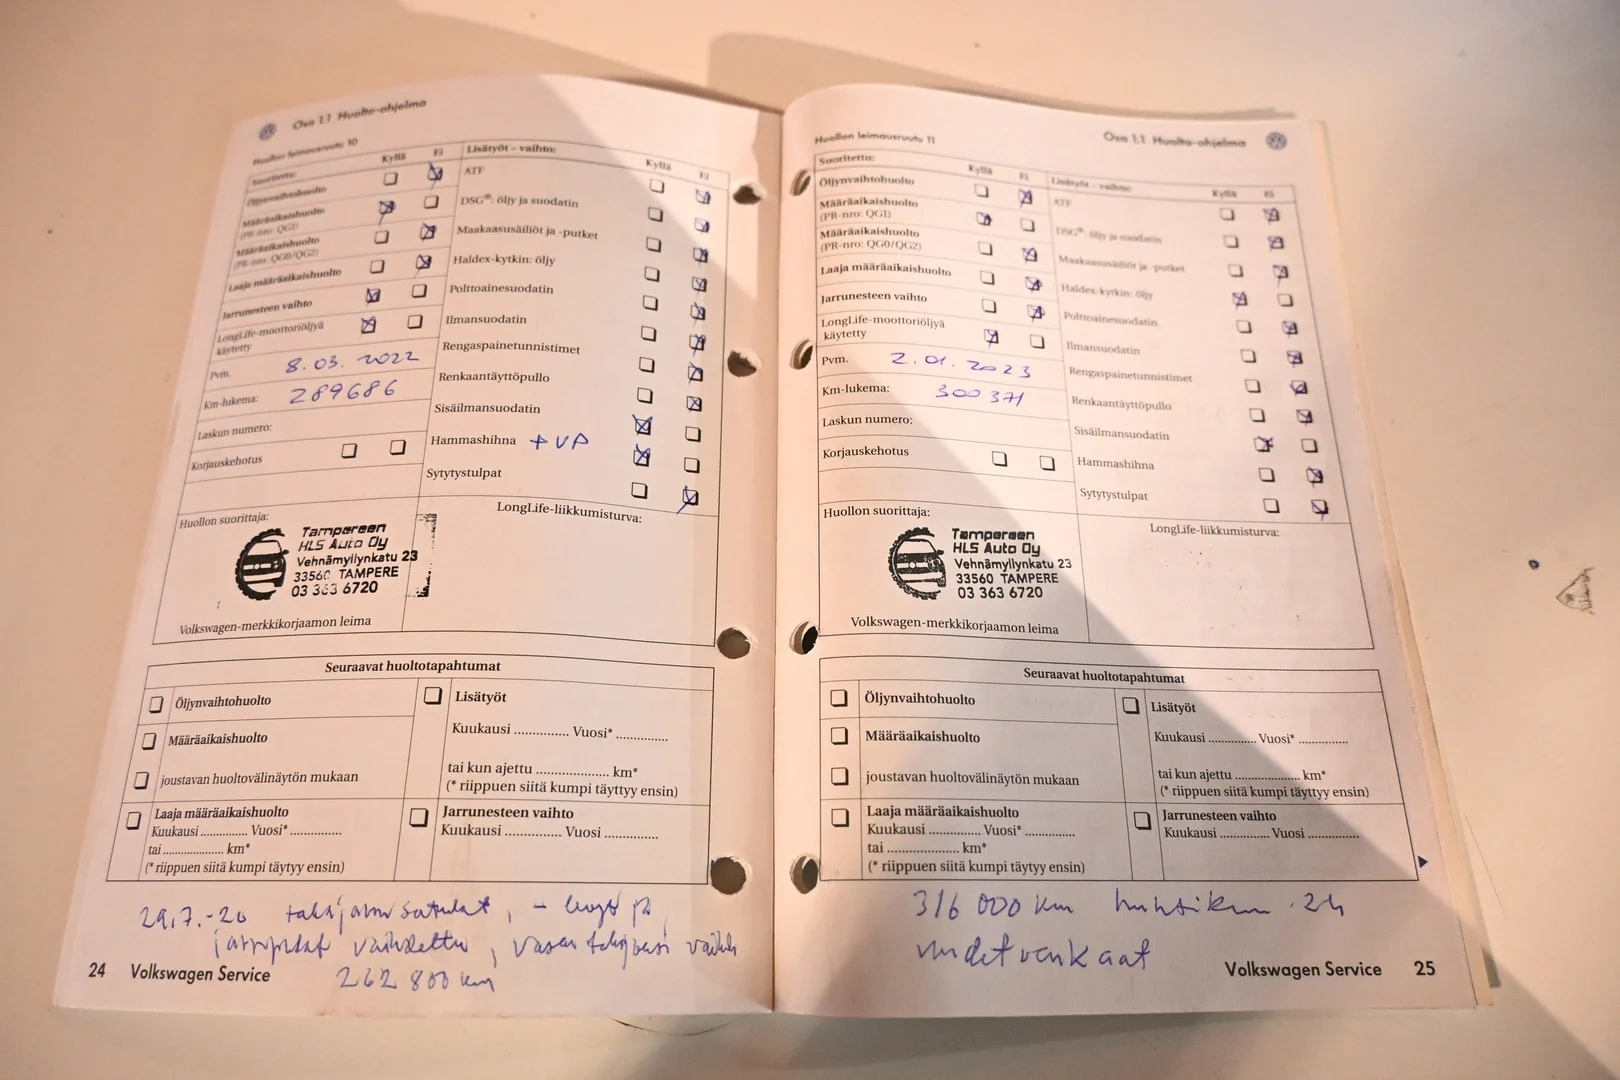 Osa 1.1 Huolto-ohjelma
Huollon leimausruutu 10
Suoritettu:
Kyllä Ei
Öljynvaihtohuolto
Määräaikaishuolto
(PR-nro: QG1)
Määräaikaishuolto
(PR-nro: QG0/QG2)
Laaja määräaikaishuolto
Jarrunesteen vaihto
LongLife-moottoriöljyä
käytetty
Pvm. 8.03.2022
Km-lukema: 289686
Laskun numero:
Korjauskehotus
Lisätyöt – vaihto:
Kyllä Ei
ATF
DSG®: öljy ja suodatin
Maakaasusäiliöt ja -putket
Haldex-kytkin: öljy
Polttoainesuodatin
Ilmansuodatin
Rengaspainetunnistimet
Renkaantäyttöpullo
Sisäilmansuodatin
Hammashihna + VP
Sytytystulpat
Huollon suorittaja:
Tampereen
HLS Auto Oy
Vehnämyllynkatu 23
33560 TAMPERE
03 363 6720
Volkswagen-merkkikorjaamon leima
LongLife-liikkumisturva:
Seuraavat huoltotapahtumat
Öljynvaihtohuolto
Määräaikaishuolto
joustavan huoltovälinäytön mukaan
Laaja määräaikaishuolto
Kuukausi .............. Vuosi* ...............
tai .................... km*
(* riippuen siitä kumpi täytyy ensin)
Lisätyöt
Kuukausi ................ Vuosi* ...............
tai kun ajettu ..................... km*
(* riippuen siitä kumpi täyttyy ensin)
Jarrunesteen vaihto
Kuukausi ................ Vuosi ...............
29.7.-20
262 800 km
24 Volkswagen Service
Huollon leimausruutu 11
Osa 1.1 Huolto-ohjelma
Suoritettu:
Kyllä Ei
Öljynvaihtohuolto
Määräaikaishuolto
(PR-nro: QG1)
Määräaikaishuolto
(PR-nro: QG0/QG2)
Laaja määräaikaishuolto
Jarrunesteen vaihto
LongLife-moottoriöljyä
käytetty
Pvm. 2.01.2023
Km-lukema: 300371
Laskun numero:
Korjauskehotus
Lisätyöt – vaihto:
Kyllä Ei
ATF
DSG®: öljy ja suodatin
Maakaasusäiliöt ja -putket
Haldex-kytkin: öljy
Polttoainesuodatin
Ilmansuodatin
Rengaspainetunnistimet
Renkaantäyttöpullo
Sisäilmansuodatin
Hammashihna
Sytytystulpat
Huollon suorittaja:
Tampereen
HLS Auto Oy
Vehnämyllynkatu 23
33560 TAMPERE
03 363 6720
Volkswagen-merkkikorjaamon leima
LongLife-liikkumisturva:
Seuraavat huoltotapahtumat
Öljynvaihtohuolto
Määräaikaishuolto
joustavan huoltovälinäytön mukaan
Laaja määräaikaishuolto
Kuukausi .............. Vuosi* ...............
tai .................... km*
(* riippuen siitä kumpi täytyy ensin)
Lisätyöt
Kuukausi .............. Vuosi* ...............
tai kun ajettu ................. km*
(* riippuen siitä kumpi täyttyy ensin)
Jarrunesteen vaihto
Kuukausi .............. Vuosi ...............
316 000 km huhtikuu 24
uudet renkaat
Volkswagen Service 25